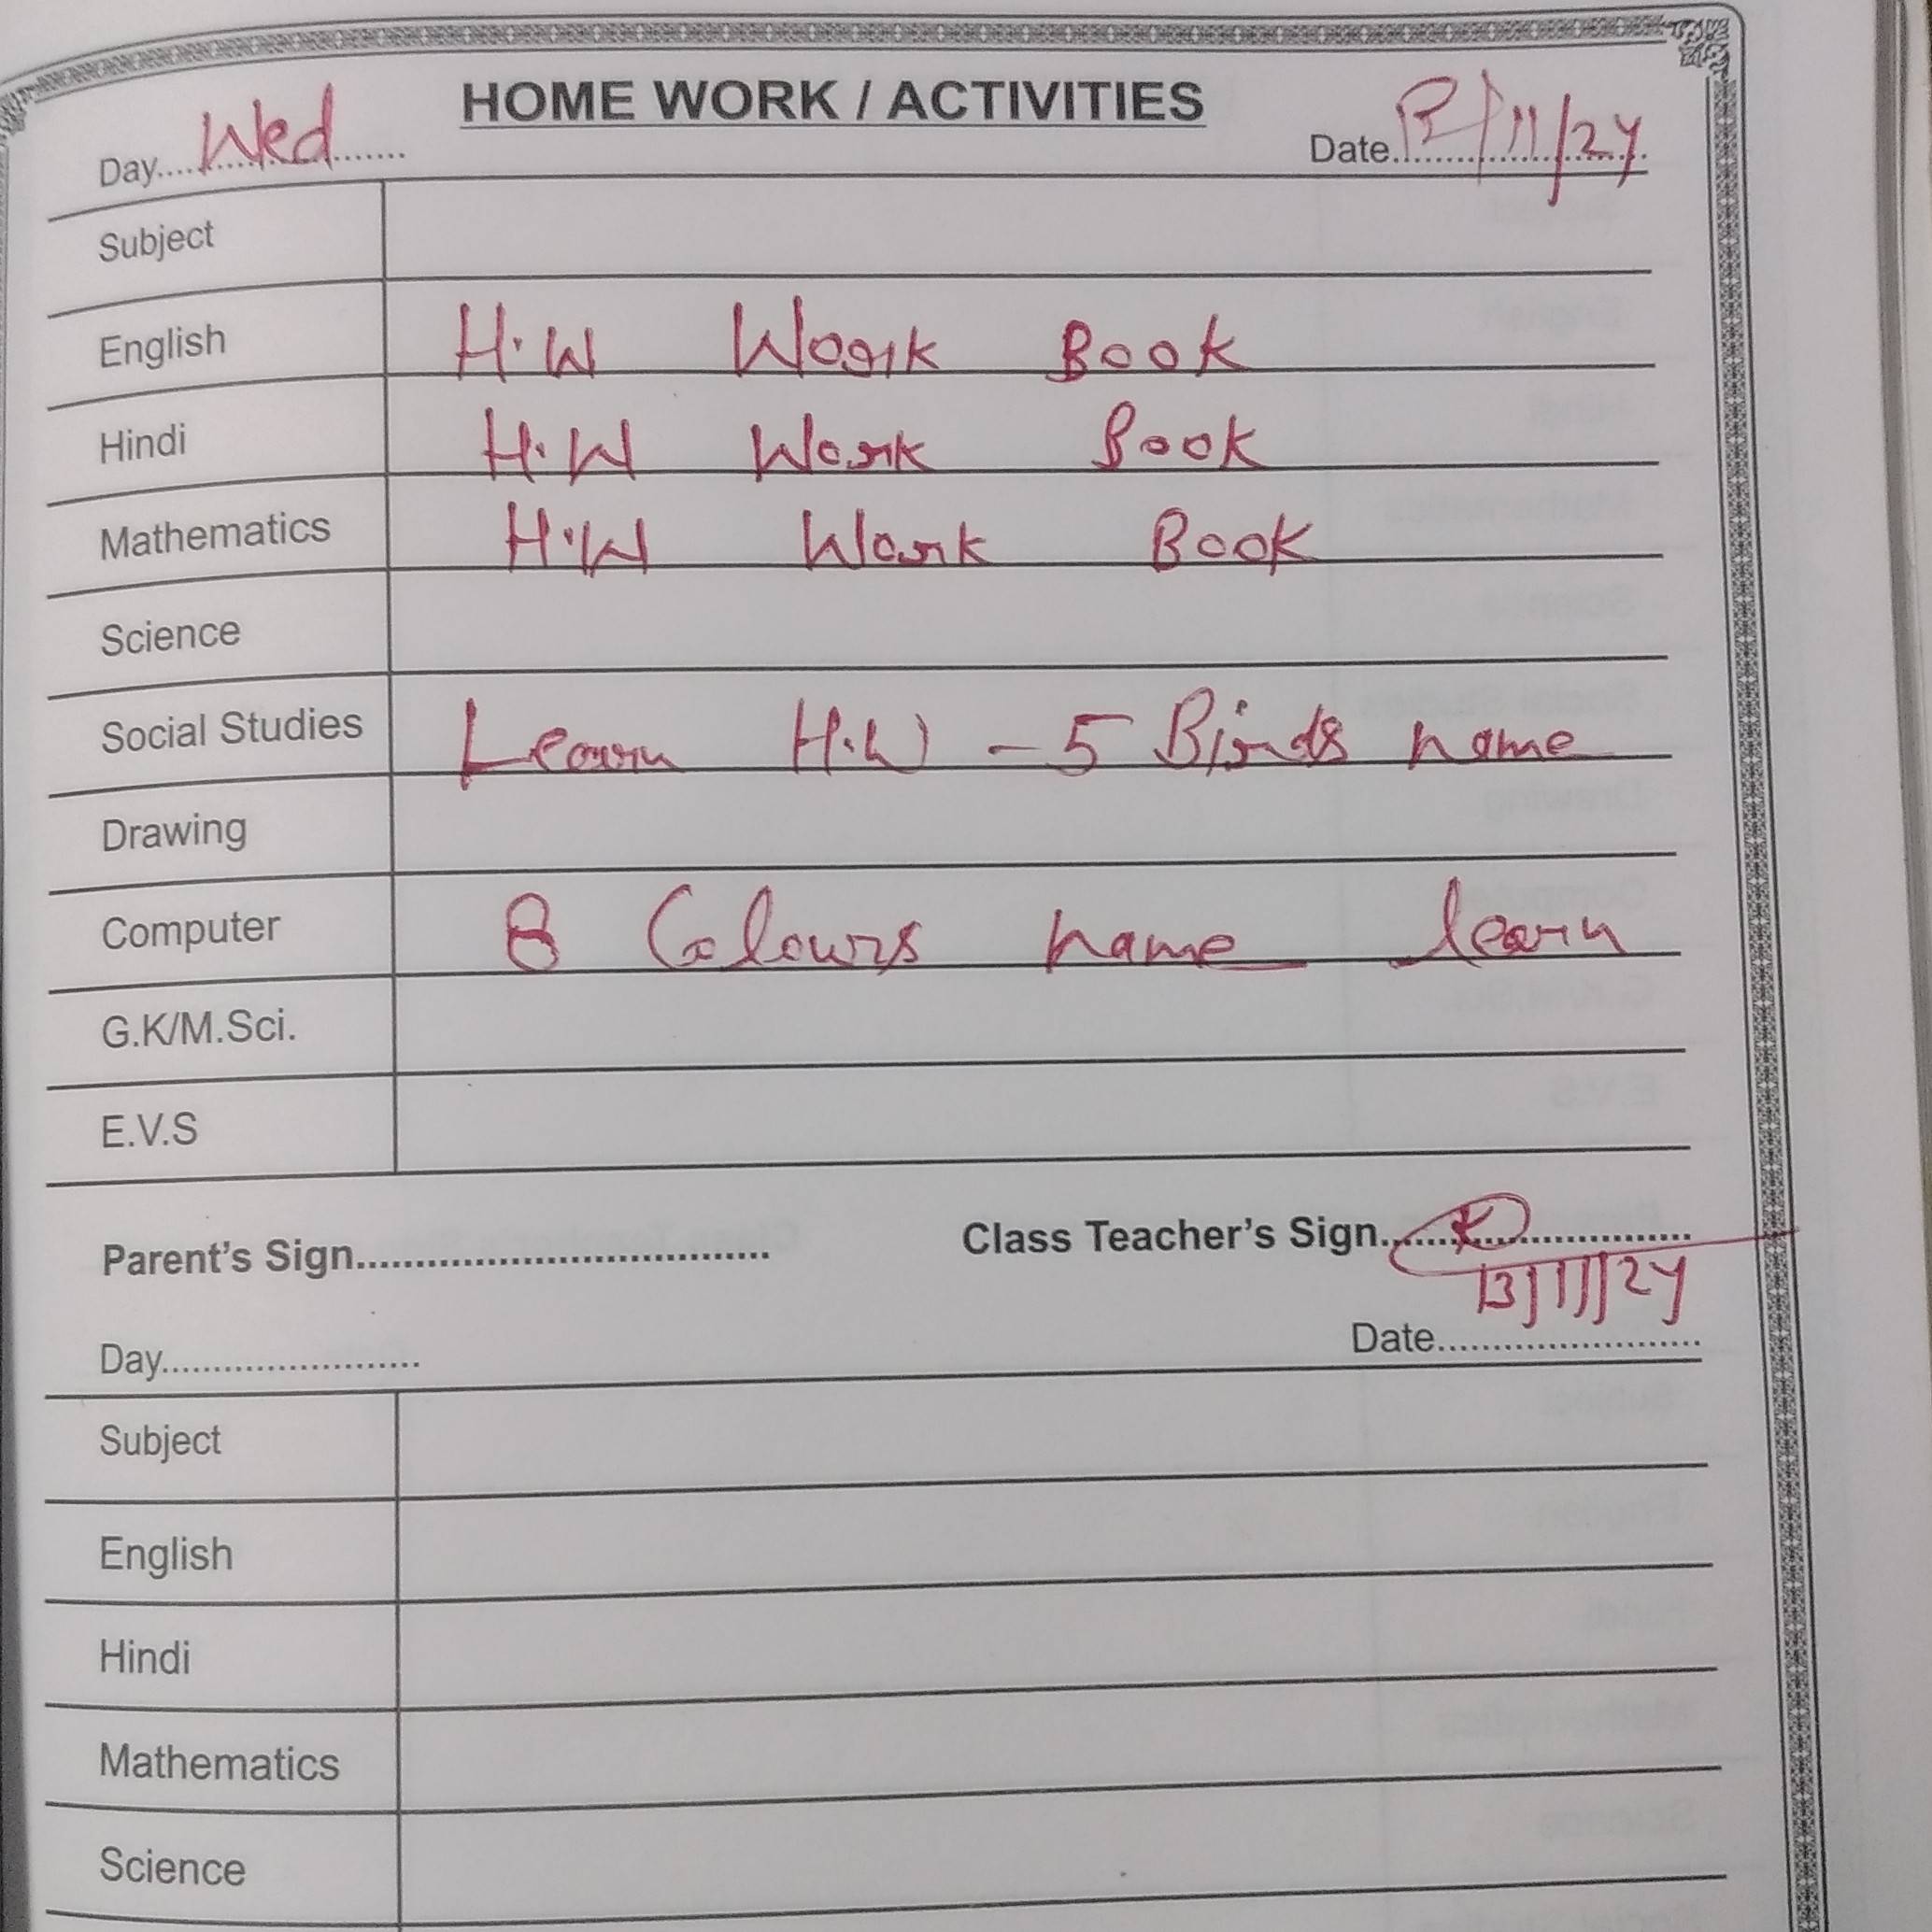 HOME WORK / ACTIVITIES
Day....Wed....... Date.13/11/24
Subject
English H.W Work Book
Hindi H.W Work Book
Mathematics H.W Work Book
Science
Social Studies Learn H.W - 5 Birds name
Drawing
Computer 8 Colours name learn
G.K/M.Sci.
E.V.S
Parent's Sign................................... Class Teacher's Sign..........................
13/11/24
Day........................ Date........................
Subject
English
Hindi
Mathematics
Science